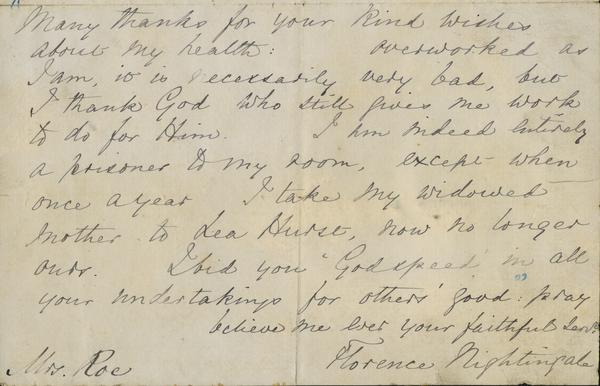 Many thanks for your kind wishes
about my health: overworked as
I am, it is necessarily very bad, but
I thank God who still gives me work
to do for Him. I am indeed entirely
a prisoner to my room, except when
once a year I take my widowed
mother to Lea Hurst, now no longer
ours. I bid you "God speed" in all
your undertakings for others' good: pray
believe me ever your faithful Servt.
Mrs. Roe Florence Nightingale